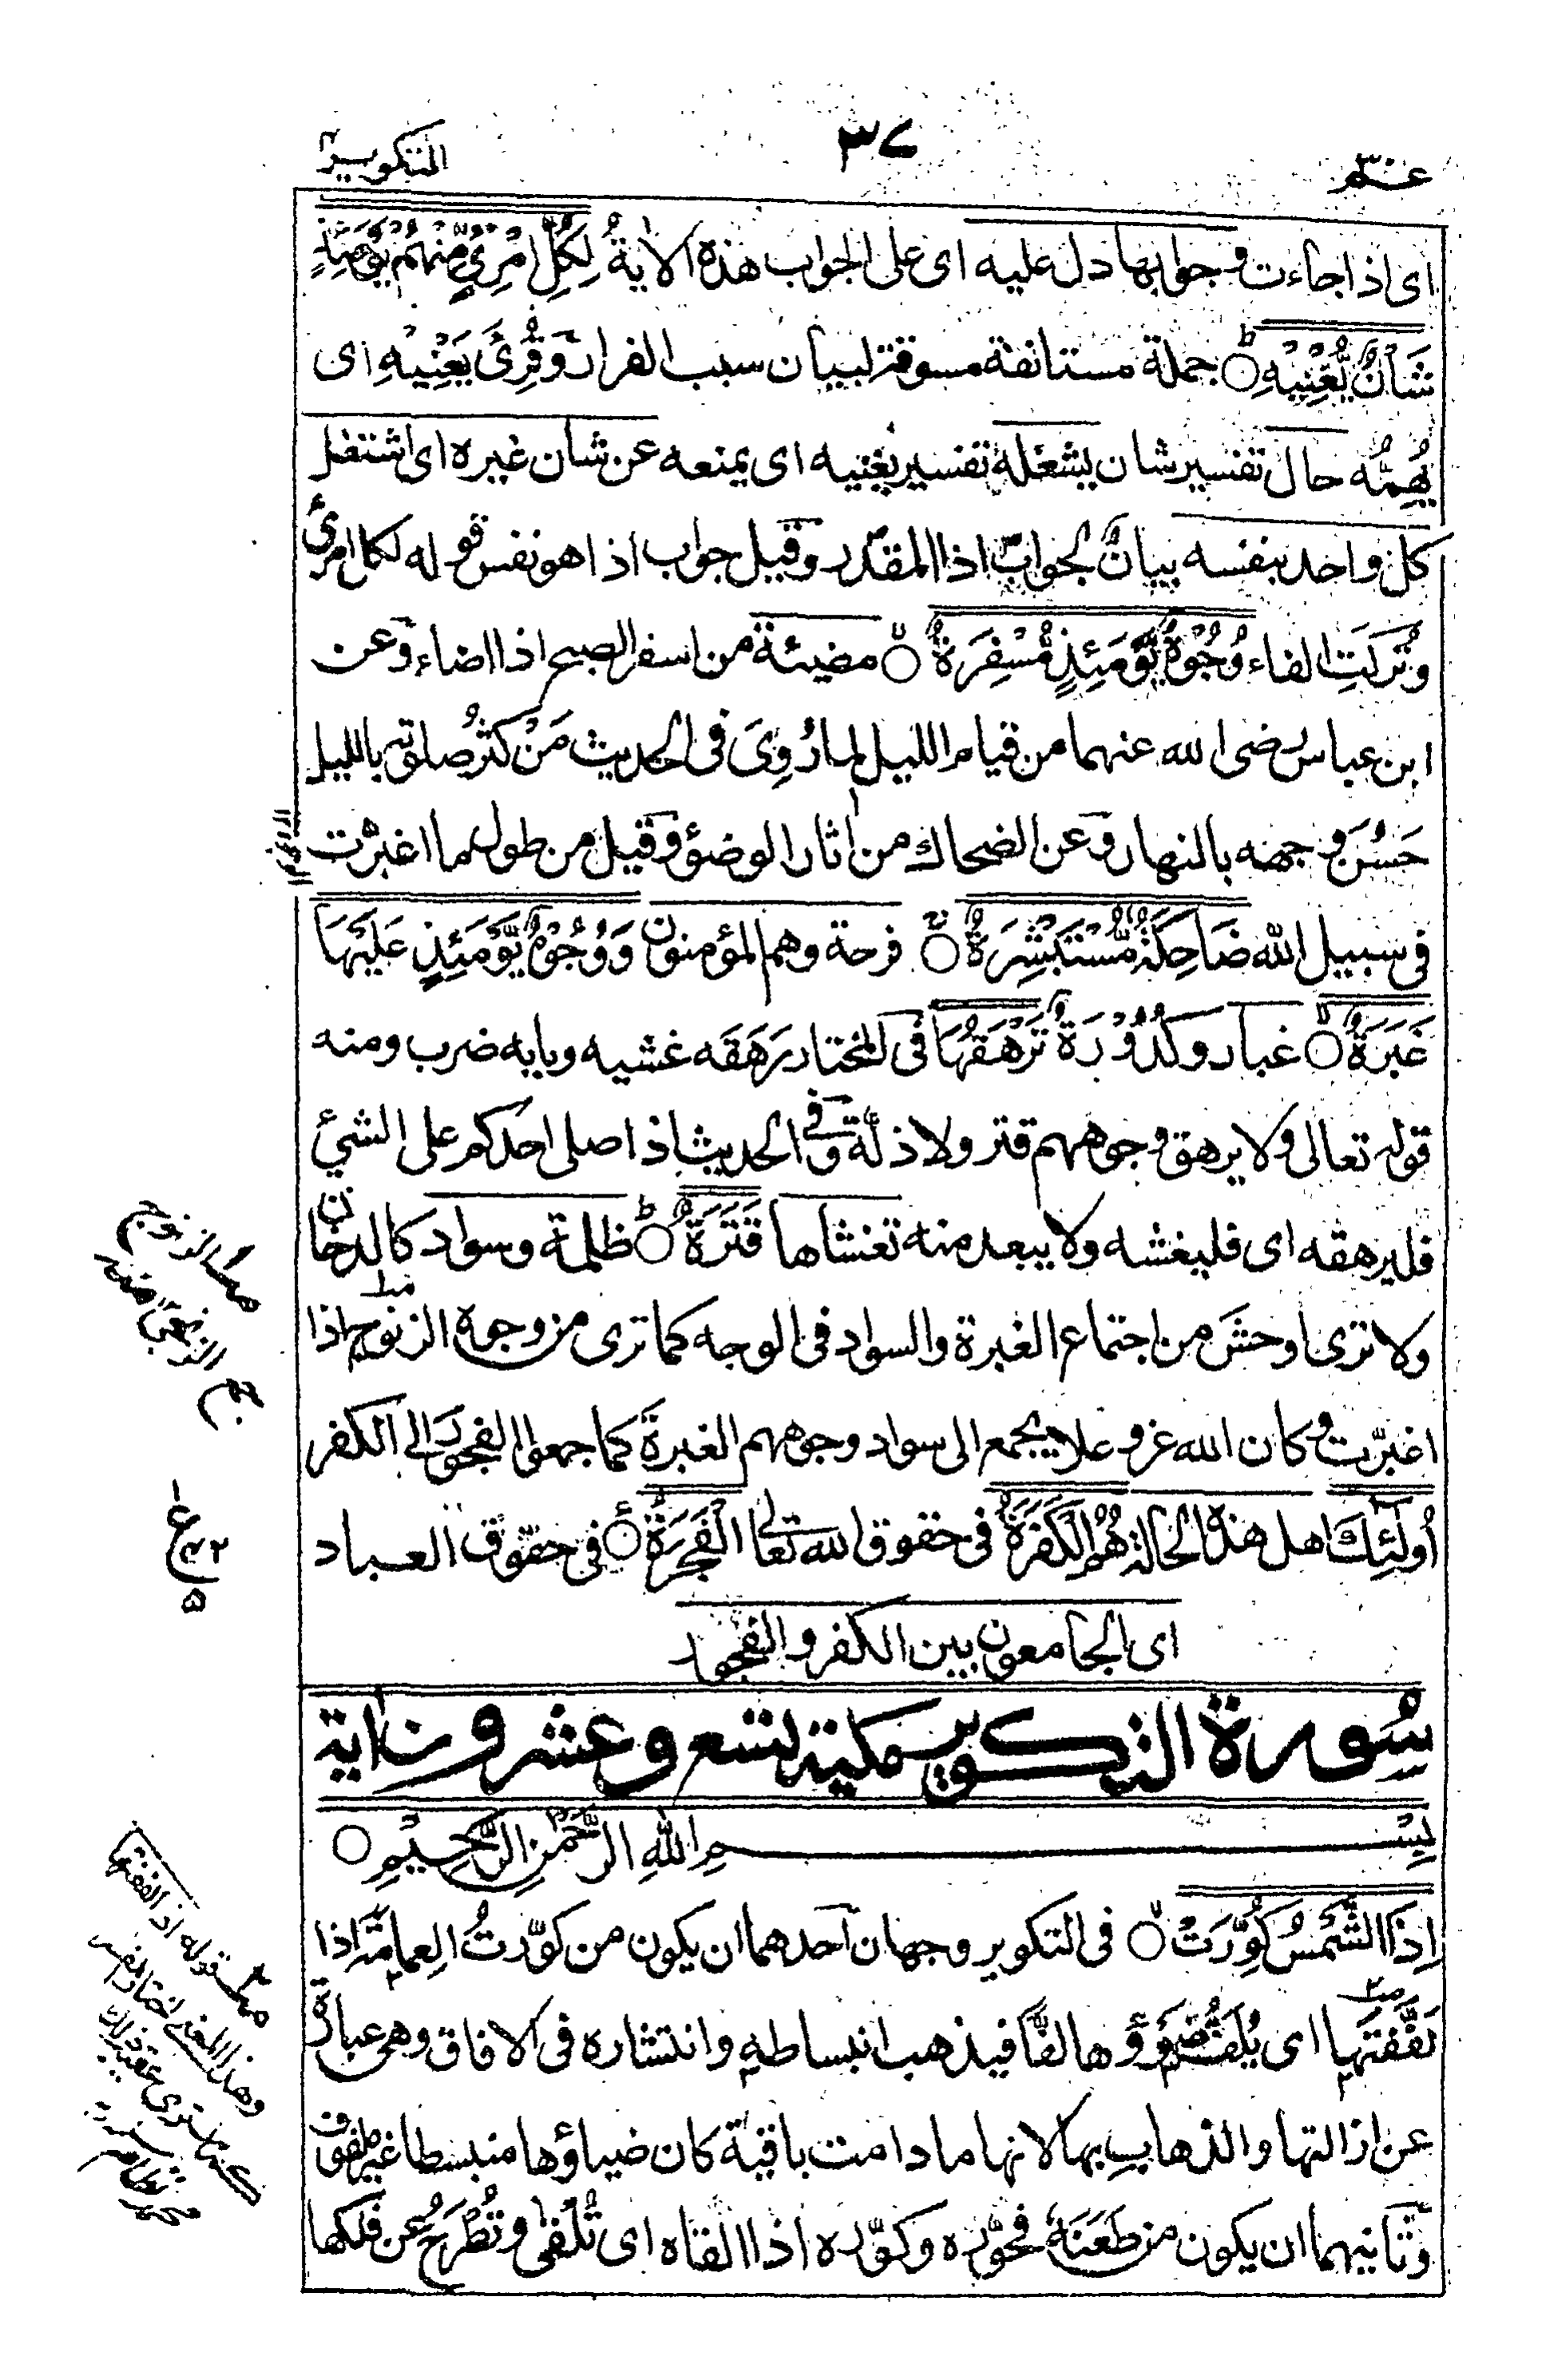 عم ٣٠
٣٧
التكوير
اى اذا جاءت وجوابها دل عليه اى على الجواب هذه الاية لِكُلِّ امْرِئٍ مِّنْهُمْ يَوْمَئِذٍ
شَأْنٌ يُّغْنِيْهِ جملة مستانفة مسوقة لبيان سبب الفرار وَقُرِئَ يَعْنِيْهِ اى
يُهِمُّه حال تفسير شان يشغله تفسير يغنيه اى يمنعه عن شان غيره اى اشتغل
كل واحد بنفسه بيانٌ لجواب اذا المقدّر وقيل جواب اذا هو نفس قوله لكل امرئ
وتُركتِ الفاء وُجُوْهٌ يَّوْمَئِذٍ مُّسْفِرَةٌ مضيئة من اسفر الصبح اذا اضاء وعن
ابن عباس رضى الله عنهما من قيام الليل لما رُوِىَ فى الحديث مَنْ كثُر صلوته بالليل
حَسُنَ وجهه بالنهار وعن الضحاك من اثار الوضوء وقيل من طول ما اغبرّت
فى سبيل الله ضَاحِكَةٌ مُّسْتَبْشِرَةٌ فرحة وهم المؤمنون وَوُجُوْهٌ يَّوْمَئِذٍ عَلَيْهَا
غَبَرَةٌ غبار وكُدُوْرَة تَرْهَقُهَا فى المختار رَهَقَه غشيه وبابه ضرب ومنه
قوله تعالى ولا يرهق وجوههم قتر ولا ذلّة وفى الحديث اذا صلى احدكم على الشئ
فليرهقه اى فليغشه ولا يبعد منه تغشاها قَتَرَةٌ ظلمة وسواد كالدخان
ولا ترى اوحش من اجتماع الغبرة والسواد فى الوجه كما ترى من وجوه الزنوج اذا
اغبرّت وكان الله عز و علا يجمع الى سواد وجوههم الغبرة كما جمعوا الفجور الى الكفر
أُولٰئِكَ اهل هذه الحالة هُمُ الْكَفَرَةُ فى حقوق الله تعالى الْفَجَرَةُ فى حقوق العباد
اى الجامعون بين الكفر والفجور
سُورة التكوير مكية تسع وعشرون اية
بِسْمِ اللهِ الرَّحْمٰنِ الرَّحِيْمِ
اِذَا الشَّمْسُ كُوِّرَتْ فى التكوير وجهان احدهما ان يكون من كوّرتُ العِمامة اذا
لَفَّفتَها اى يُلَفُّ ضوؤها لفًّا فيذهب انبساطه وانتشاره فى الافاق وهى عبارة
عن ازالتها والذهاب بها لانها ما دامت باقية كان ضياؤها منبسطا غير ملفوف
وثانيهما ان يكون من طَعَنَهٗ فجوّره وكوّره اذا القاه اى تُلْقٰى وتُطْرَحُ عن فلكها
الزنوج
جمع
ع
٥
قوله اذا لففتها